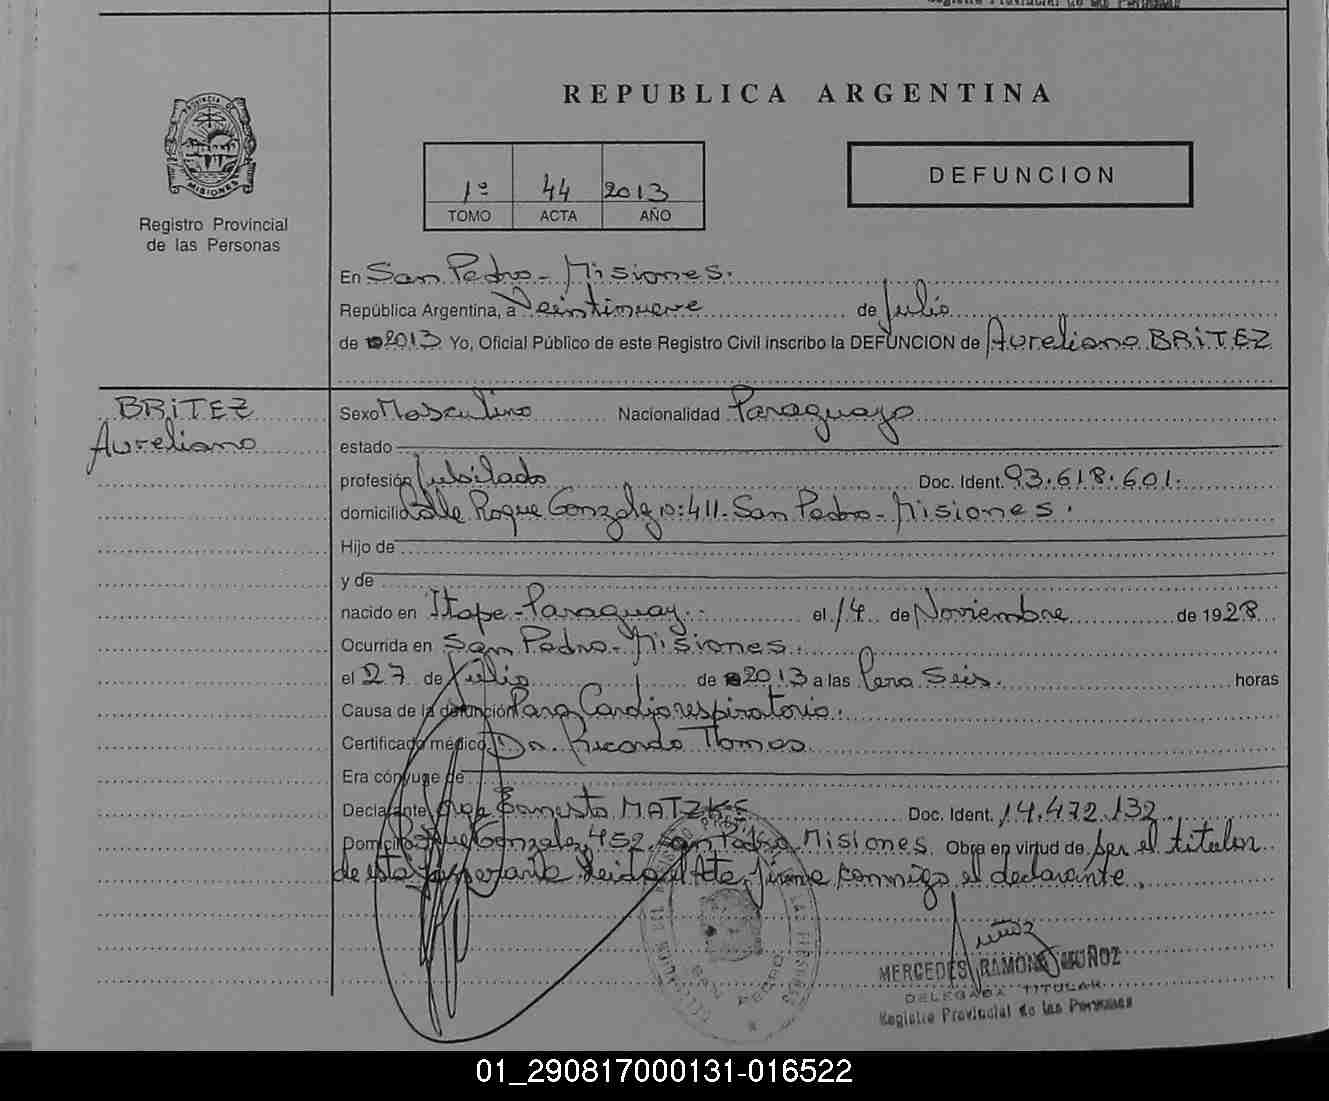 Registro Provincial de las Personas
REPUBLICA ARGENTINA
PROVINCIA DE
MISIONES
Registro Provincial
de las Personas
1º 44 2013
TOMO ACTA AÑO
DEFUNCION
En San Pedro - Misiones.
República Argentina, a Veintinueve de Julio
de 2013 Yo, Oficial Público de este Registro Civil inscribo la DEFUNCION de Aureliano BRITEZ
BRITEZ
Aureliano
Sexo Masculino Nacionalidad Paraguayo
estado
profesión Jubilado Doc. Ident. 93.618.601.
domicilio Calle Roque Gonzalez 411. San Pedro - Misiones.
Hijo de
y de
nacido en Itape - Paraguay. el 14 de Noviembre de 1928
Ocurrida en San Pedro - Misiones.
el 27 de Julio de 2013 a las Seis. horas
Causa de la defunción Paro Cardiorespiratorio.
Certificado médico Dr. Ricardo
Era cónyuge de
Declarante Jorge Ernesto MATZKE Doc. Ident. 14.472.132
Domicilio Roque Gonzalez 452. San Pedro Misiones. Obra en virtud de ser el titular
de esta leida el Acta, firma conmigo el declarante.
SAN PEDRO
Muñoz
MERCEDES RAMONA MUÑOZ
DELEGADA TITULAR
Registro Provincial de las Personas
01_290817000131-016522